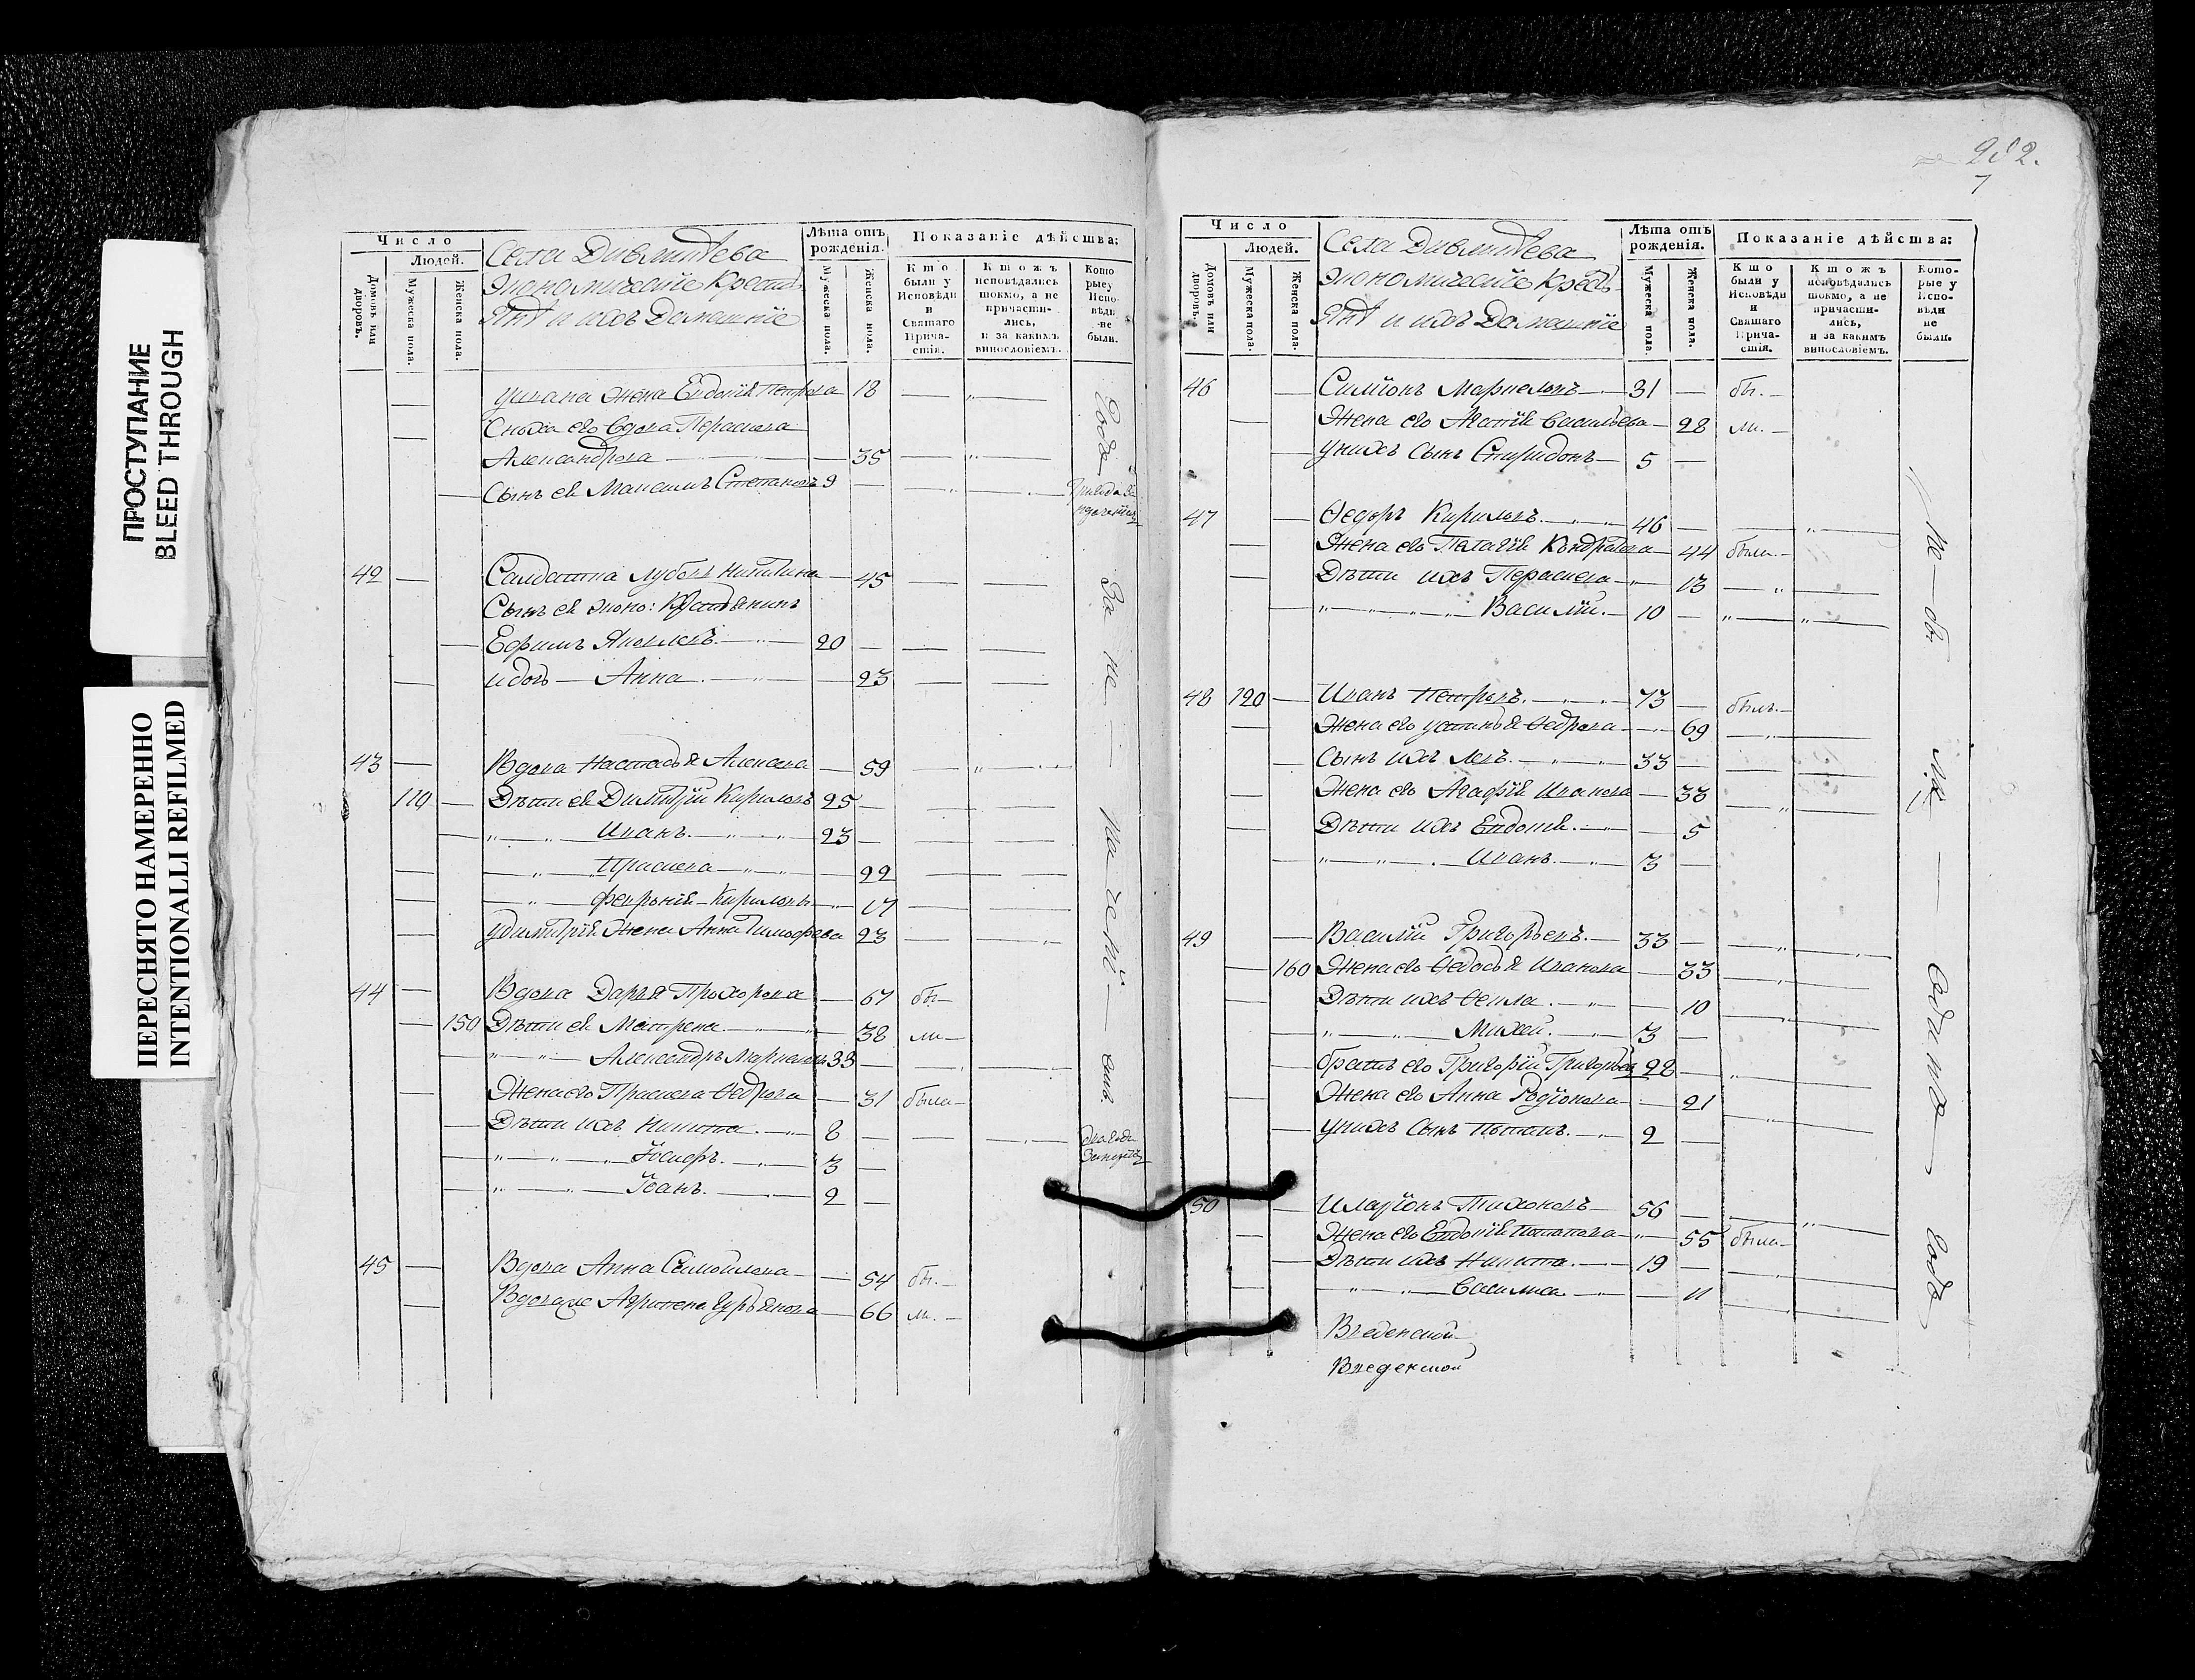 ПРОСТУПАНИЕ
BLEED THROUGH
ПЕРЕСНЯТО НАМЕРЕННО
INTENTIONALLI REFILMED
Число
Людей.
Домовъ или дворовъ.
Мужеска пола.
Женска пола.
Села
Экономическіе Крестья
янѣ и ихъ Домашніе
Лѣта отъ рожденія.
Мужеска пола.
Женска пола.
Показаніе дѣйства:
Кто были у Исповѣди и Святаго Причастія.
Ктожъ исповѣдались токмо, а не причастились, и за какимъ винословіемъ.
Которые у Исповѣди не были.
Жена Евдокія Петрова 18
Сноха его вдова Параскева
Александрова 35
Сынъ ея Максимъ Степановъ 9
42 Салдатка Никитина 45
Сынъ ея эконо: Крестьянинъ
Ефимъ Яковлевъ 20
и дочь Анна 23
43 Вдова Настасья Алексева 59
119 Дѣти ея Димитрій Кириловъ 25
Иванъ 23
Праскева 22
Кирилова 17
У Димитрія Жена Анна Тимофеева 23
44 Вдова Дарья Прохорова 67 бы
150 Дѣти ея Матрена 38 ли
Александръ Маркеловъ 33
Жена его Праскева Ѳедрова 31 была
Дѣти ихъ Никита 8
Іосифъ 3
Іоанъ 2
45 Вдова Анна Самойлова 54 бы.
Вдова же Агрипена Гурьянова 66 ли.
282.
7
Число
Людей.
Домовъ или дворовъ.
Мужеска пола.
Женска пола.
Села
Экономическіе Кресть
янѣ и ихъ Домашніе
Лѣта отъ рожденія.
Мужеска пола.
Женска пола.
Показаніе дѣйства:
Кто были у Исповѣди и Святаго Причастія.
Ктожъ исповѣдались токмо, а не причастились, и за какимъ винословіемъ.
Которые у Исповѣди не были.
46 Симіонъ Маркеловъ 31 бы.
Жена его Васильева 28 ли.
У нихъ сынъ Спиридонъ 5
47 Ѳедоръ Кириловъ 46
Жена его Пелагія Кондратова 44 была
Дѣти ихъ Параскева 13
Василій 10
48 120 Иванъ Петровъ 73 былъ
Жена его Устинья Ѳедрова 69
Сынъ ихъ Левъ 33
Жена его Агафія Иванова 33
Дѣти ихъ Евдокія 5
Иванъ 3
49 Василій Григорьевъ 33
160 Жена его Ѳедосья Иванова 33
Дѣти ихъ Ѳекла 10
Михей 3
братъ его Григорій Григорьевъ 28
Жена его Анна Родіонова 21
У нихъ сынъ 2
50 Иларіонъ Тихоновъ 56
Жена его Евдокія 55 была
Дѣти ихъ Никита 19
Василиса 11
Введенской
Введенской